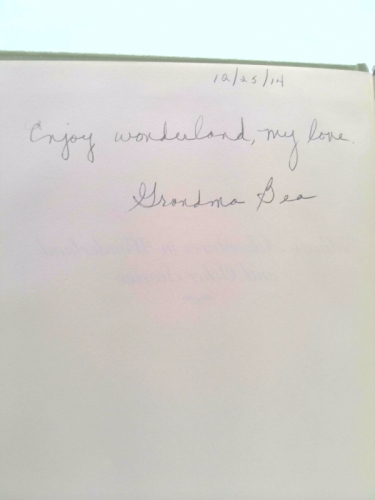 12/25/14
Enjoy wonderland, my love.
Grandma Bea